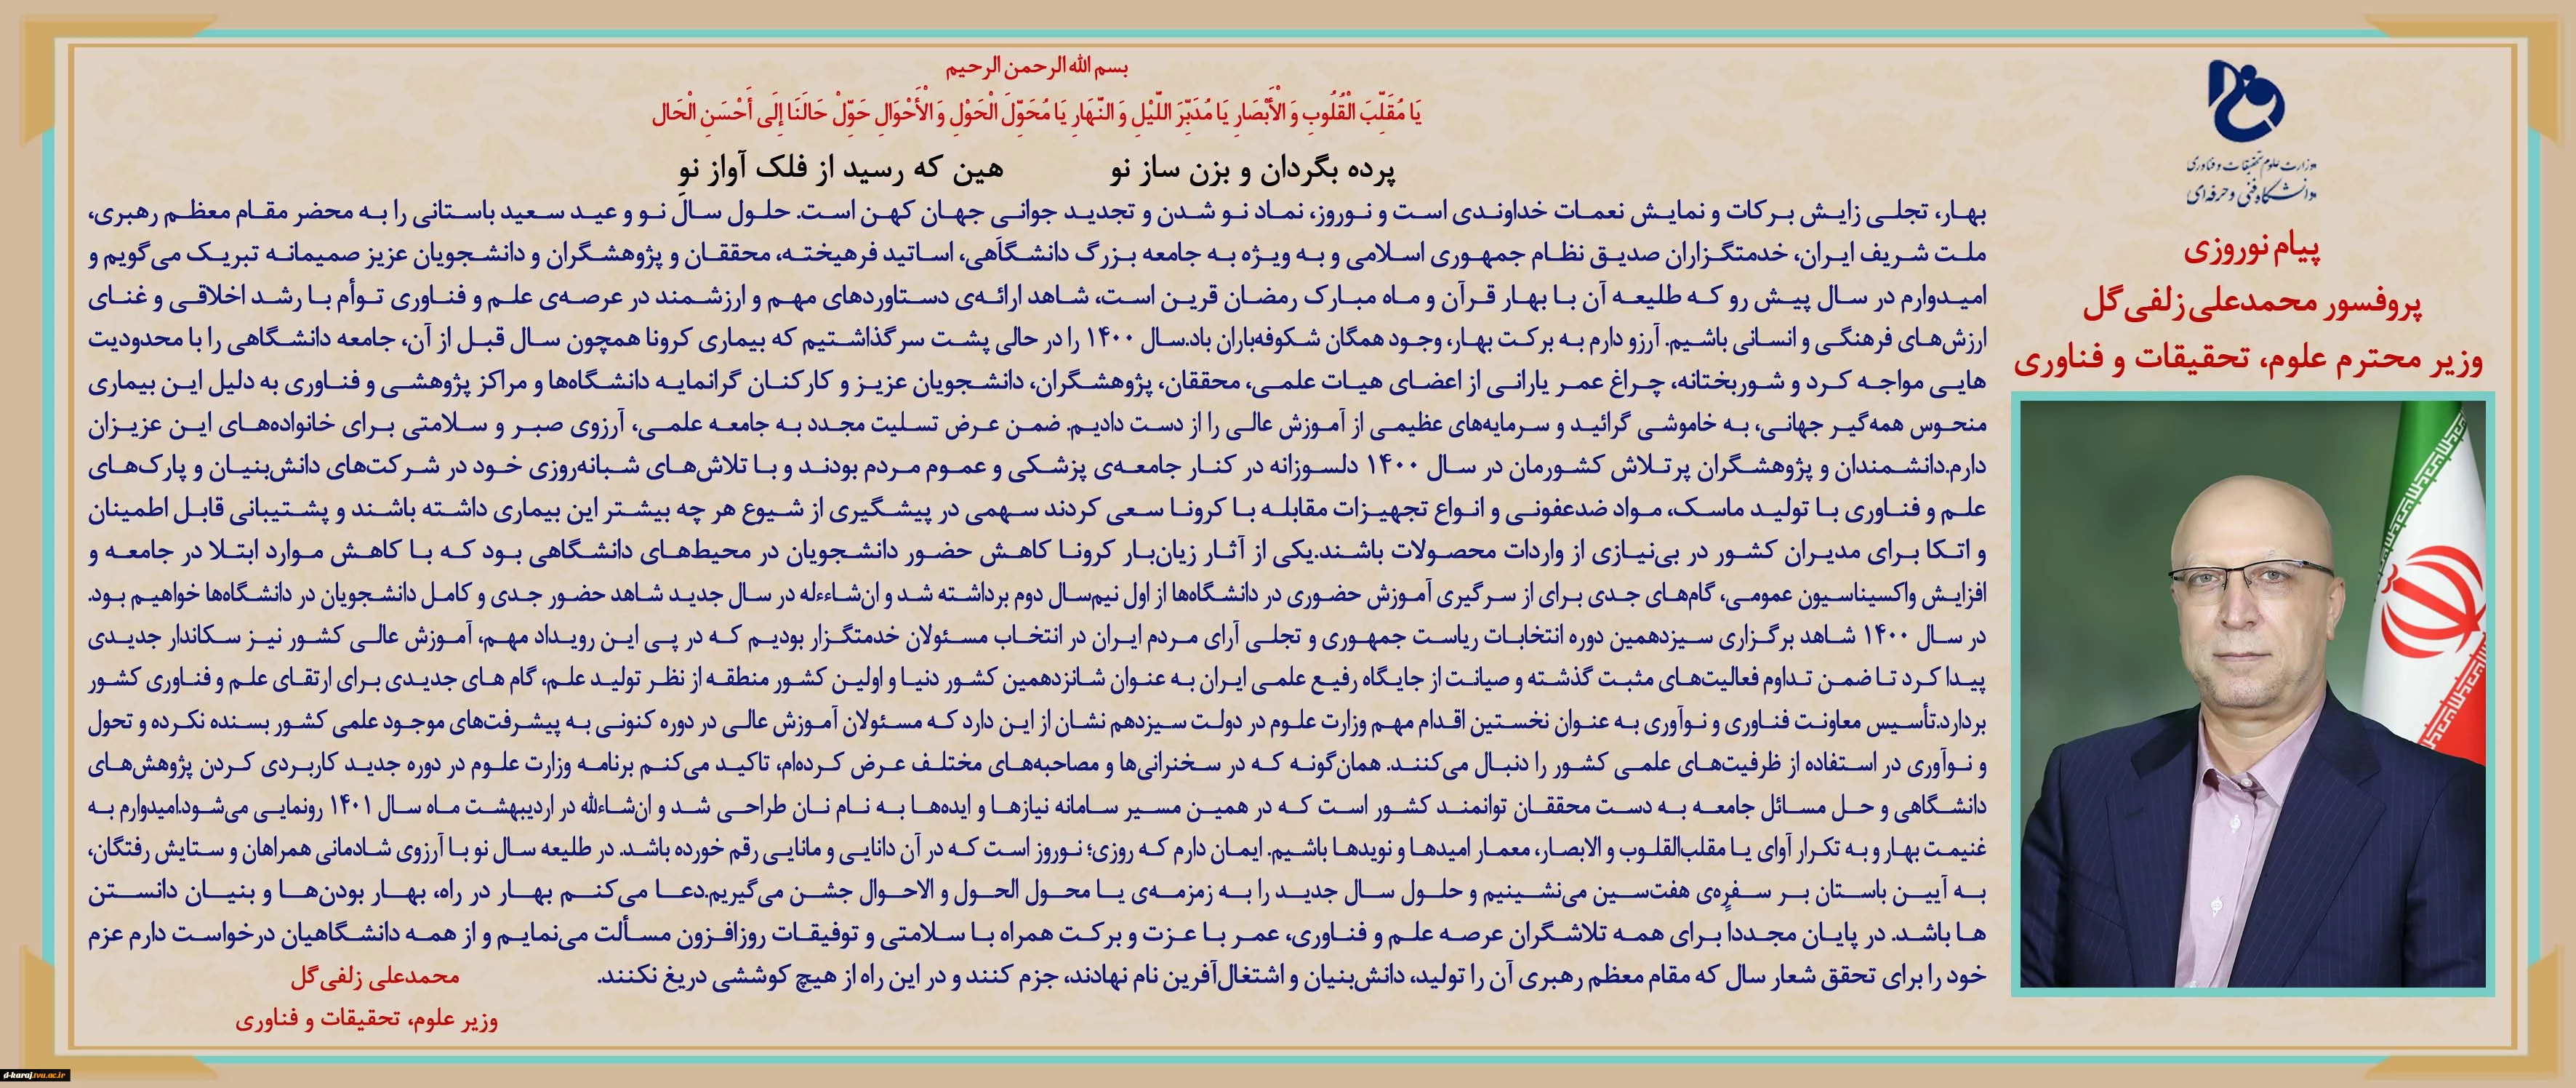 بسم الله الرحمن الرحیم
یَا مُقَلِّبَ الْقُلُوبِ وَ الْأَبْصَارِ یَا مُدَبِّرَ اللَّیْلِ وَ النَّهَارِ یَا مُحَوِّلَ الْحَوْلِ وَ الْأَحْوَالِ حَوِّلْ حَالَنَا إِلَی أَحْسَنِ الْحَال
پرده بگردان و بزن ساز نو هین که رسید از فلک آواز نو
وزارت علوم تحقیقات و فناوری
دانشگاه فنی و حرفه‌ای
پیام نوروزی
پروفسور محمدعلی زلفی‌گل
وزیر محترم علوم، تحقیقات و فناوری
بهار، تجلی زایش برکات و نمایش نعمات خداوندی است و نوروز، نماد نو شدن و تجدید جوانی جهان کهن است. حلول سال نو و عید سعید باستانی را به محضر مقام معظم رهبری،
ملت شریف ایران، خدمتگزاران صدیق نظام جمهوری اسلامی و به ویژه به جامعه بزرگ دانشگاهی، اساتید فرهیخته، محققان و پژوهشگران و دانشجویان عزیز صمیمانه تبریک می‌گویم و
امیدوارم در سال پیش رو که طلیعه آن با بهار قرآن و ماه مبارک رمضان قرین است، شاهد ارائه‌ی دستاوردهای مهم و ارزشمند در عرصه‌ی علم و فناوری توأم با رشد اخلاقی و غنای
ارزش‌های فرهنگی و انسانی باشیم. آرزو دارم به برکت بهار، وجود همگان شکوفه‌باران باد.سال ۱۴۰۰ را در حالی پشت سر گذاشتیم که بیماری کرونا همچون سال قبل از آن، جامعه دانشگاهی را با محدودیت
هایی مواجه کرد و شوربختانه، چراغ عمر یارانی از اعضای هیات علمی، محققان، پژوهشگران، دانشجویان عزیز و کارکنان گرانمایه دانشگاه‌ها و مراکز پژوهشی و فناوری به دلیل این بیماری
منحوس همه‌گیر جهانی، به خاموشی گرائید و سرمایه‌های عظیمی از آموزش عالی را از دست دادیم. ضمن عرض تسلیت مجدد به جامعه علمی، آرزوی صبر و سلامتی برای خانواده‌های این عزیزان
دارم.دانشمندان و پژوهشگران پرتلاش کشورمان در سال ۱۴۰۰ دلسوزانه در کنار جامعه‌ی پزشکی و عموم مردم بودند و با تلاش‌های شبانه‌روزی خود در شرکت‌های دانش‌بنیان و پارک‌های
علم و فناوری با تولید ماسک، مواد ضدعفونی و انواع تجهیزات مقابله با کرونا سعی کردند سهمی در پیشگیری از شیوع هر چه بیشتر این بیماری داشته باشند و پشتیبانی قابل اطمینان
و اتکا برای مدیران کشور در بی‌نیازی از واردات محصولات باشند.یکی از آثار زیان‌بار کرونا کاهش حضور دانشجویان در محیط‌های دانشگاهی بود که با کاهش موارد ابتلا در جامعه و
افزایش واکسیناسیون عمومی، گام‌های جدی برای از سرگیری آموزش حضوری در دانشگاه‌ها از اول نیم‌سال دوم برداشته شد و ان‌شاءءله در سال جدید شاهد حضور جدی و کامل دانشجویان در دانشگاه‌ها خواهیم بود.
در سال ۱۴۰۰ شاهد برگزاری سیزدهمین دوره انتخابات ریاست جمهوری و تجلی آرای مردم ایران در انتخاب مسئولان خدمتگزار بودیم که در پی این رویداد مهم، آموزش عالی کشور نیز سکاندار جدیدی
پیدا کرد تا ضمن تداوم فعالیت‌های مثبت گذشته و صیانت از جایگاه رفیع علمی ایران به عنوان شانزدهمین کشور دنیا و اولین کشور منطقه از نظر تولید علم، گام های جدیدی برای ارتقای علم و فناوری کشور
بردارد.تأسیس معاونت فناوری و نوآوری به عنوان نخستین اقدام مهم وزارت علوم در دولت سیزدهم نشان از این دارد که مسئولان آموزش عالی در دوره کنونی به پیشرفت‌های موجود علمی کشور بسنده نکرده و تحول
و نوآوری در استفاده از ظرفیت‌های علمی کشور را دنبال می‌کنند. همان‌گونه که در سخنرانی‌ها و مصاحبه‌های مختلف عرض کرده‌ام، تاکید می‌کنم برنامه وزارت علوم در دوره جدید کاربردی کردن پژوهش‌های
دانشگاهی و حل مسائل جامعه به دست محققان توانمند کشور است که در همین مسیر سامانه نیازها و ایده‌ها به نام نان طراحی شد و ان‌شاءالله در اردیبهشت ماه سال ۱۴۰۱ رونمایی می‌شود.امیدوارم به
غنیمت بهار و به تکرار آوای یا مقلب‌القلوب و الابصار، معمار امیدها و نویدها باشیم. ایمان دارم که روزی؛ نوروز است که در آن دانایی و مانایی رقم خورده باشد. در طلیعه سال نو با آرزوی شادمانی همراهان و ستایش رفتگان،
به آیین باستان بر سفره‌ی هفت‌سین می‌نشینیم و حلول سال جدید را به زمزمه‌ی یا محول الحول و الاحوال جشن می‌گیریم.دعا می‌کنم بهار در راه، بهار بودن‌ها و بنیان دانستن
ها باشد. در پایان مجددا برای همه تلاشگران عرصه علم و فناوری، عمر با عزت و برکت همراه با سلامتی و توفیقات روزافزون مسألت می‌نمایم و از همه دانشگاهیان درخواست دارم عزم
خود را برای تحقق شعار سال که مقام معظم رهبری آن را تولید، دانش‌بنیان و اشتغال‌آفرین نام نهادند، جزم کنند و در این راه از هیچ کوششی دریغ نکنند.
محمدعلی زلفی‌گل
وزیر علوم، تحقیقات و فناوری
d-karaj.tvu.ac.ir